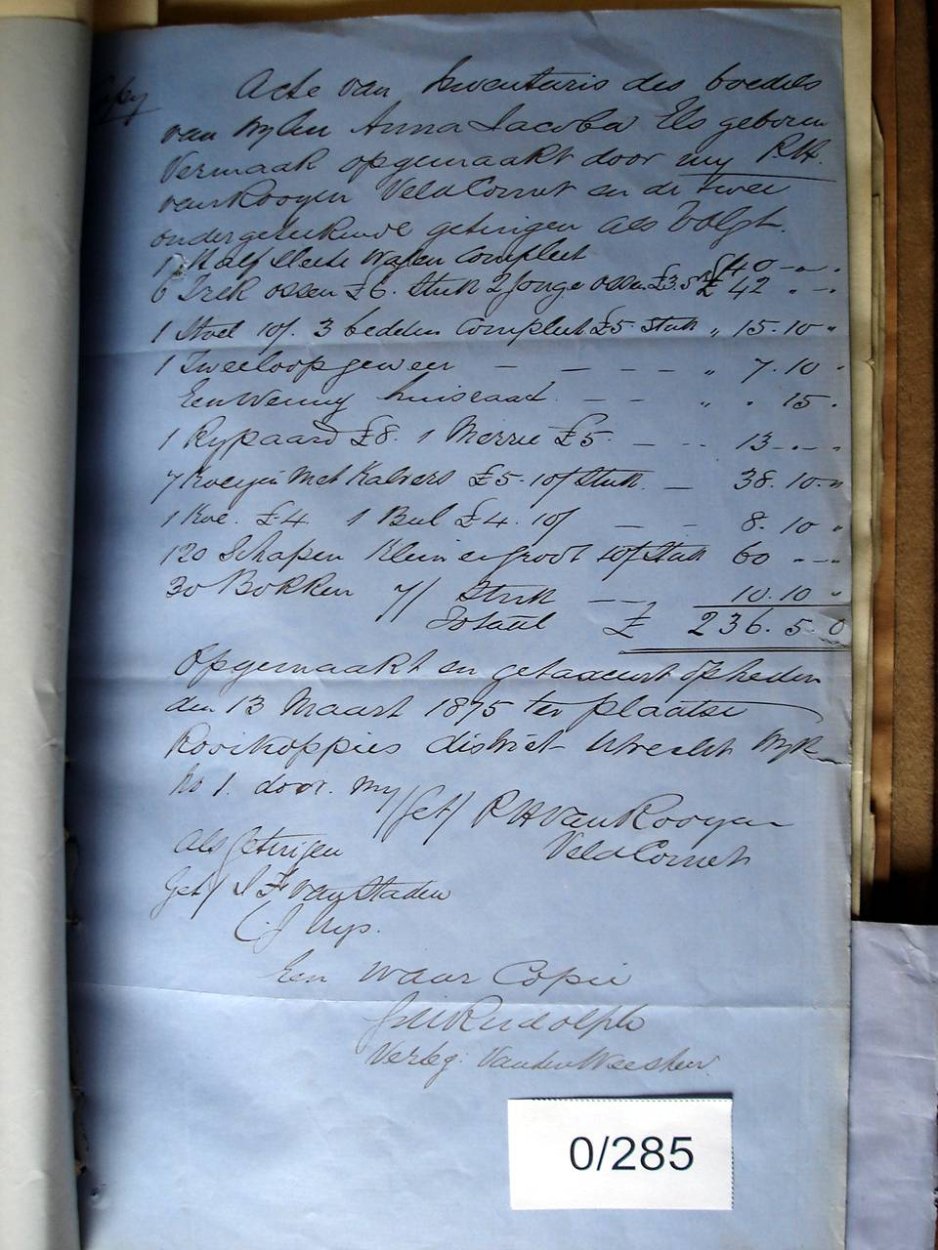 Copy
Acte van Inventaris des boedels
van wylen Anna Jacoba Els geboren
Vermaak opgemaakt door my R.H.
van Rooyen VeldCornet en de twee
ondergetekende getuigen als Volgt.
1 Half Slete Wagen Compleet £40 - " "
6 Trek ossen £6. Stuk 2 Jonge ossen £3. Stk £ 42 " - "
1 Stoel 10/. 3 bedden Compleet £5 Stuk " 15. 10 "
1 Tweeloop geweer — — — — " 7. 10 "
Een Weinig huisraad. — — " " 15 "
1 Rypaard £8. 1 Merrie £5 — " 13 - " "
7 Koeyen Met Kalvers £5 - 10/ Stuk — 38. 10 "
1 Koe. £4. 1 Bul £4. 10/ — — 8. 10 "
120 Schapen Klein en groot 10/ Stuk 60 - - -
30 Bokken 7/ Stuk — — 10. 10 "
Totaal £ 236. 5 0
Opgemaakt en getaxeert op heden
den 13 Maart 1875 ter plaatse
Rooikoppies district Utrecht Wyk
No 1. door. My /Get/ R H Van Rooyen
Als Getuigen VeldCornet
Get/ van Staden
Een Waar Copie
Rudolph
Verteg: Van den Weesheer
0/285